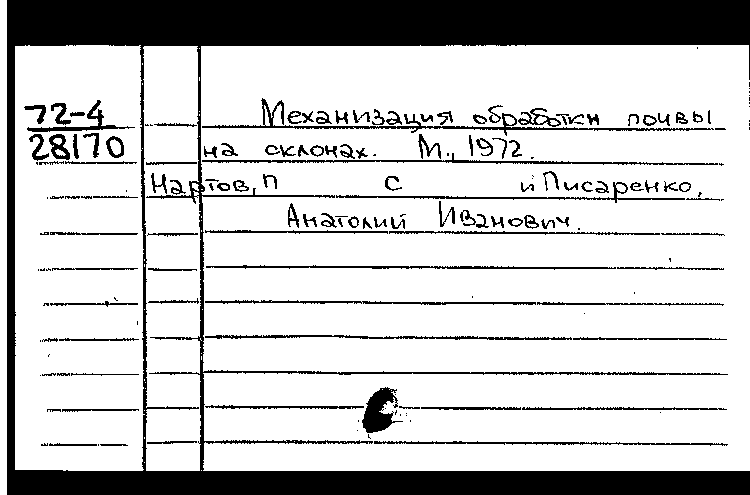 72-4
28170
Механизация обработки почвы
на склонах. М., 1972.
Нартов, П С и Писаренко,
Анатолий Иванович.